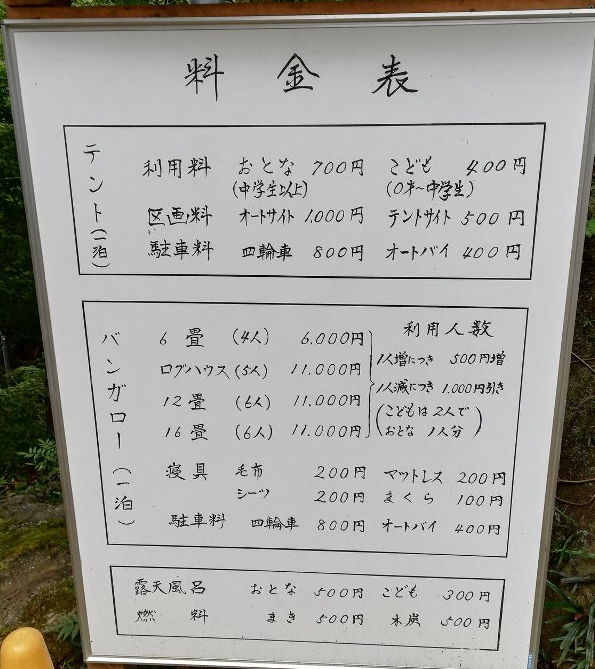 料金表
テント(一泊)
利用料 おとな 700円 こども 400円
(中学生以上) (0才〜中学生)
区画料 オートサイト 1,000円 テントサイト 500円
駐車料 四輪車 800円 オートバイ 400円
バンガロー(一泊)
利用人数
6畳 (4人) 6,000円
1人増につき 500円増
ログハウス (5人) 11,000円
1人減につき 1,000円引き
12畳 (6人) 11,000円
(こどもは2人で
おとな 1人分)
16畳 (6人) 11,000円
寝具 毛布 200円 マットレス 200円
シーツ 200円 まくら 100円
駐車料 四輪車 800円 オートバイ 400円
露天風呂 おとな 500円 こども 300円
燃料 まき 500円 木炭 500円